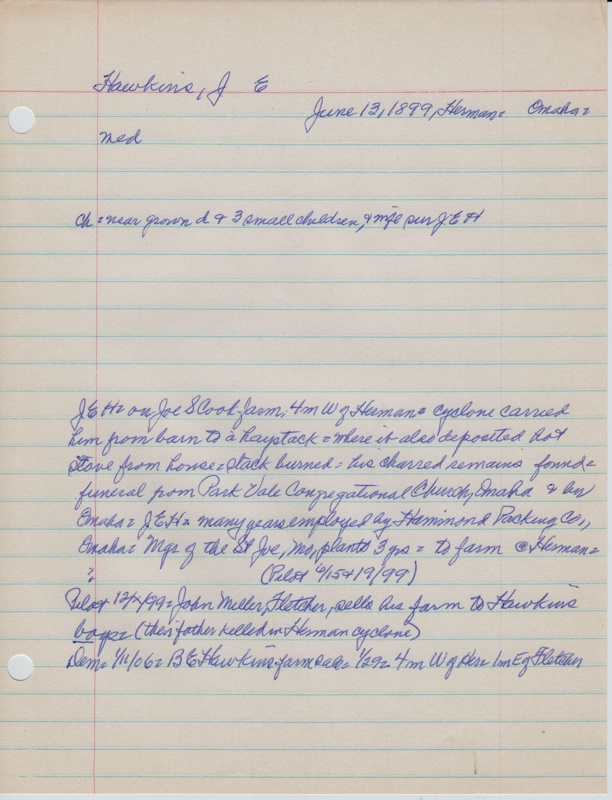 Hawkins, J E
June 13, 1899, Herman = Omaha =
Med
ch = near grown d & 3 small children, & wife sur J E H
J E H = on Joe S Cook farm, 4 m W of Herman = cyclone carried
him from barn to a haystack = where it also deposited hot
stove from house = stack burned = his charred remains found =
funeral from Park Vale Congregational Church, Omaha & bu
Omaha = J E H = many years employed by Hammond Packing Co.,
Omaha = Mgr of the St Joe, Mo, plant 3 yrs = to farm @ Herman =
? (Pilot 6/15 & 19/99)
Pilot 12/ /99 = John Miller, Fletcher, sells his farm to Hawkins
boys = (their father killed in Herman cyclone)
Dem = 1/11/06 = B E Hawkins farm sale = 1/29 = 4 m W of Her = 1m E of Fletcher